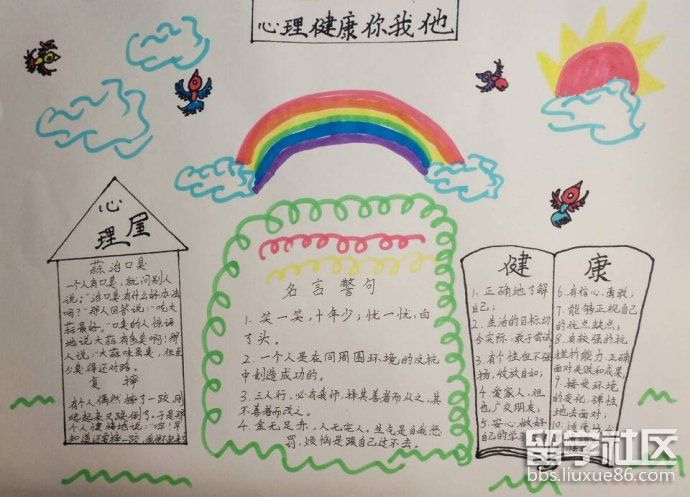 心理健康你我他
心
理屋
蒜治口臭
一个人有口臭,就问别人
说:"治口臭有什么好办法
吗?"那人回答说:"吃大
蒜最好。"口臭的人惊讶
地说大蒜有多臭啊!那
人说:"大蒜味虽臭,但至
少臭得还对路。
复摔
有个人偶然摔了一跤,刚
爬起来又跌倒了。于是那
个人懊悔地说:"啐!早
知道还要摔一跤,
名言警句
1. 笑一笑,十年少;忧一忧,白
了头。
2. 一个人是在同周围环境的反抗
中制造成功的。
3. 三人行,必有我师,择其善者而从之,其
不善者而改之。
4. 金无足赤,人无完人,生气是自我惩
罚,烦恼是跟自己过不去。
健
1. 正确地了解
自己;
2. 生活的目标切
合实际,敢于尝试
3. 有个性但不张
扬,
4. 爱家人,但
也广交朋友;
5. 安心做好
自己的学
康
6. 有信心,勇敢;
7. 能够正视自己
的优点缺点;
8. 有较强的抗
挫折能力,正确
面对失败和成果
9. 接受环境
的变化,弹性
地去面对;
10.
留学社区
bbs.liuxue86.com